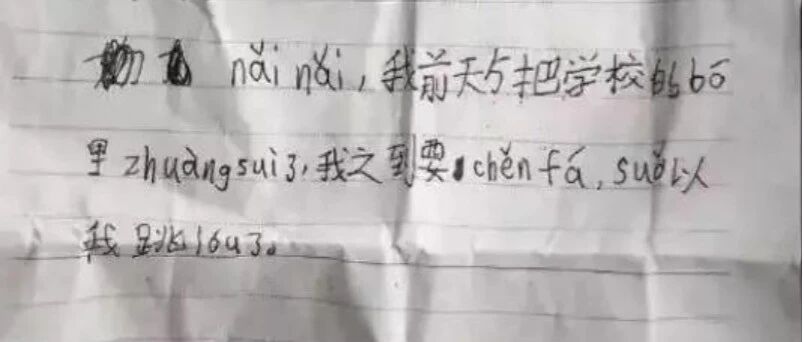 nǎi nǎi，我前天与把学校的bō
里zhuàngsui了，我之到要chěnfá，suǒ以
我跳lóu了。